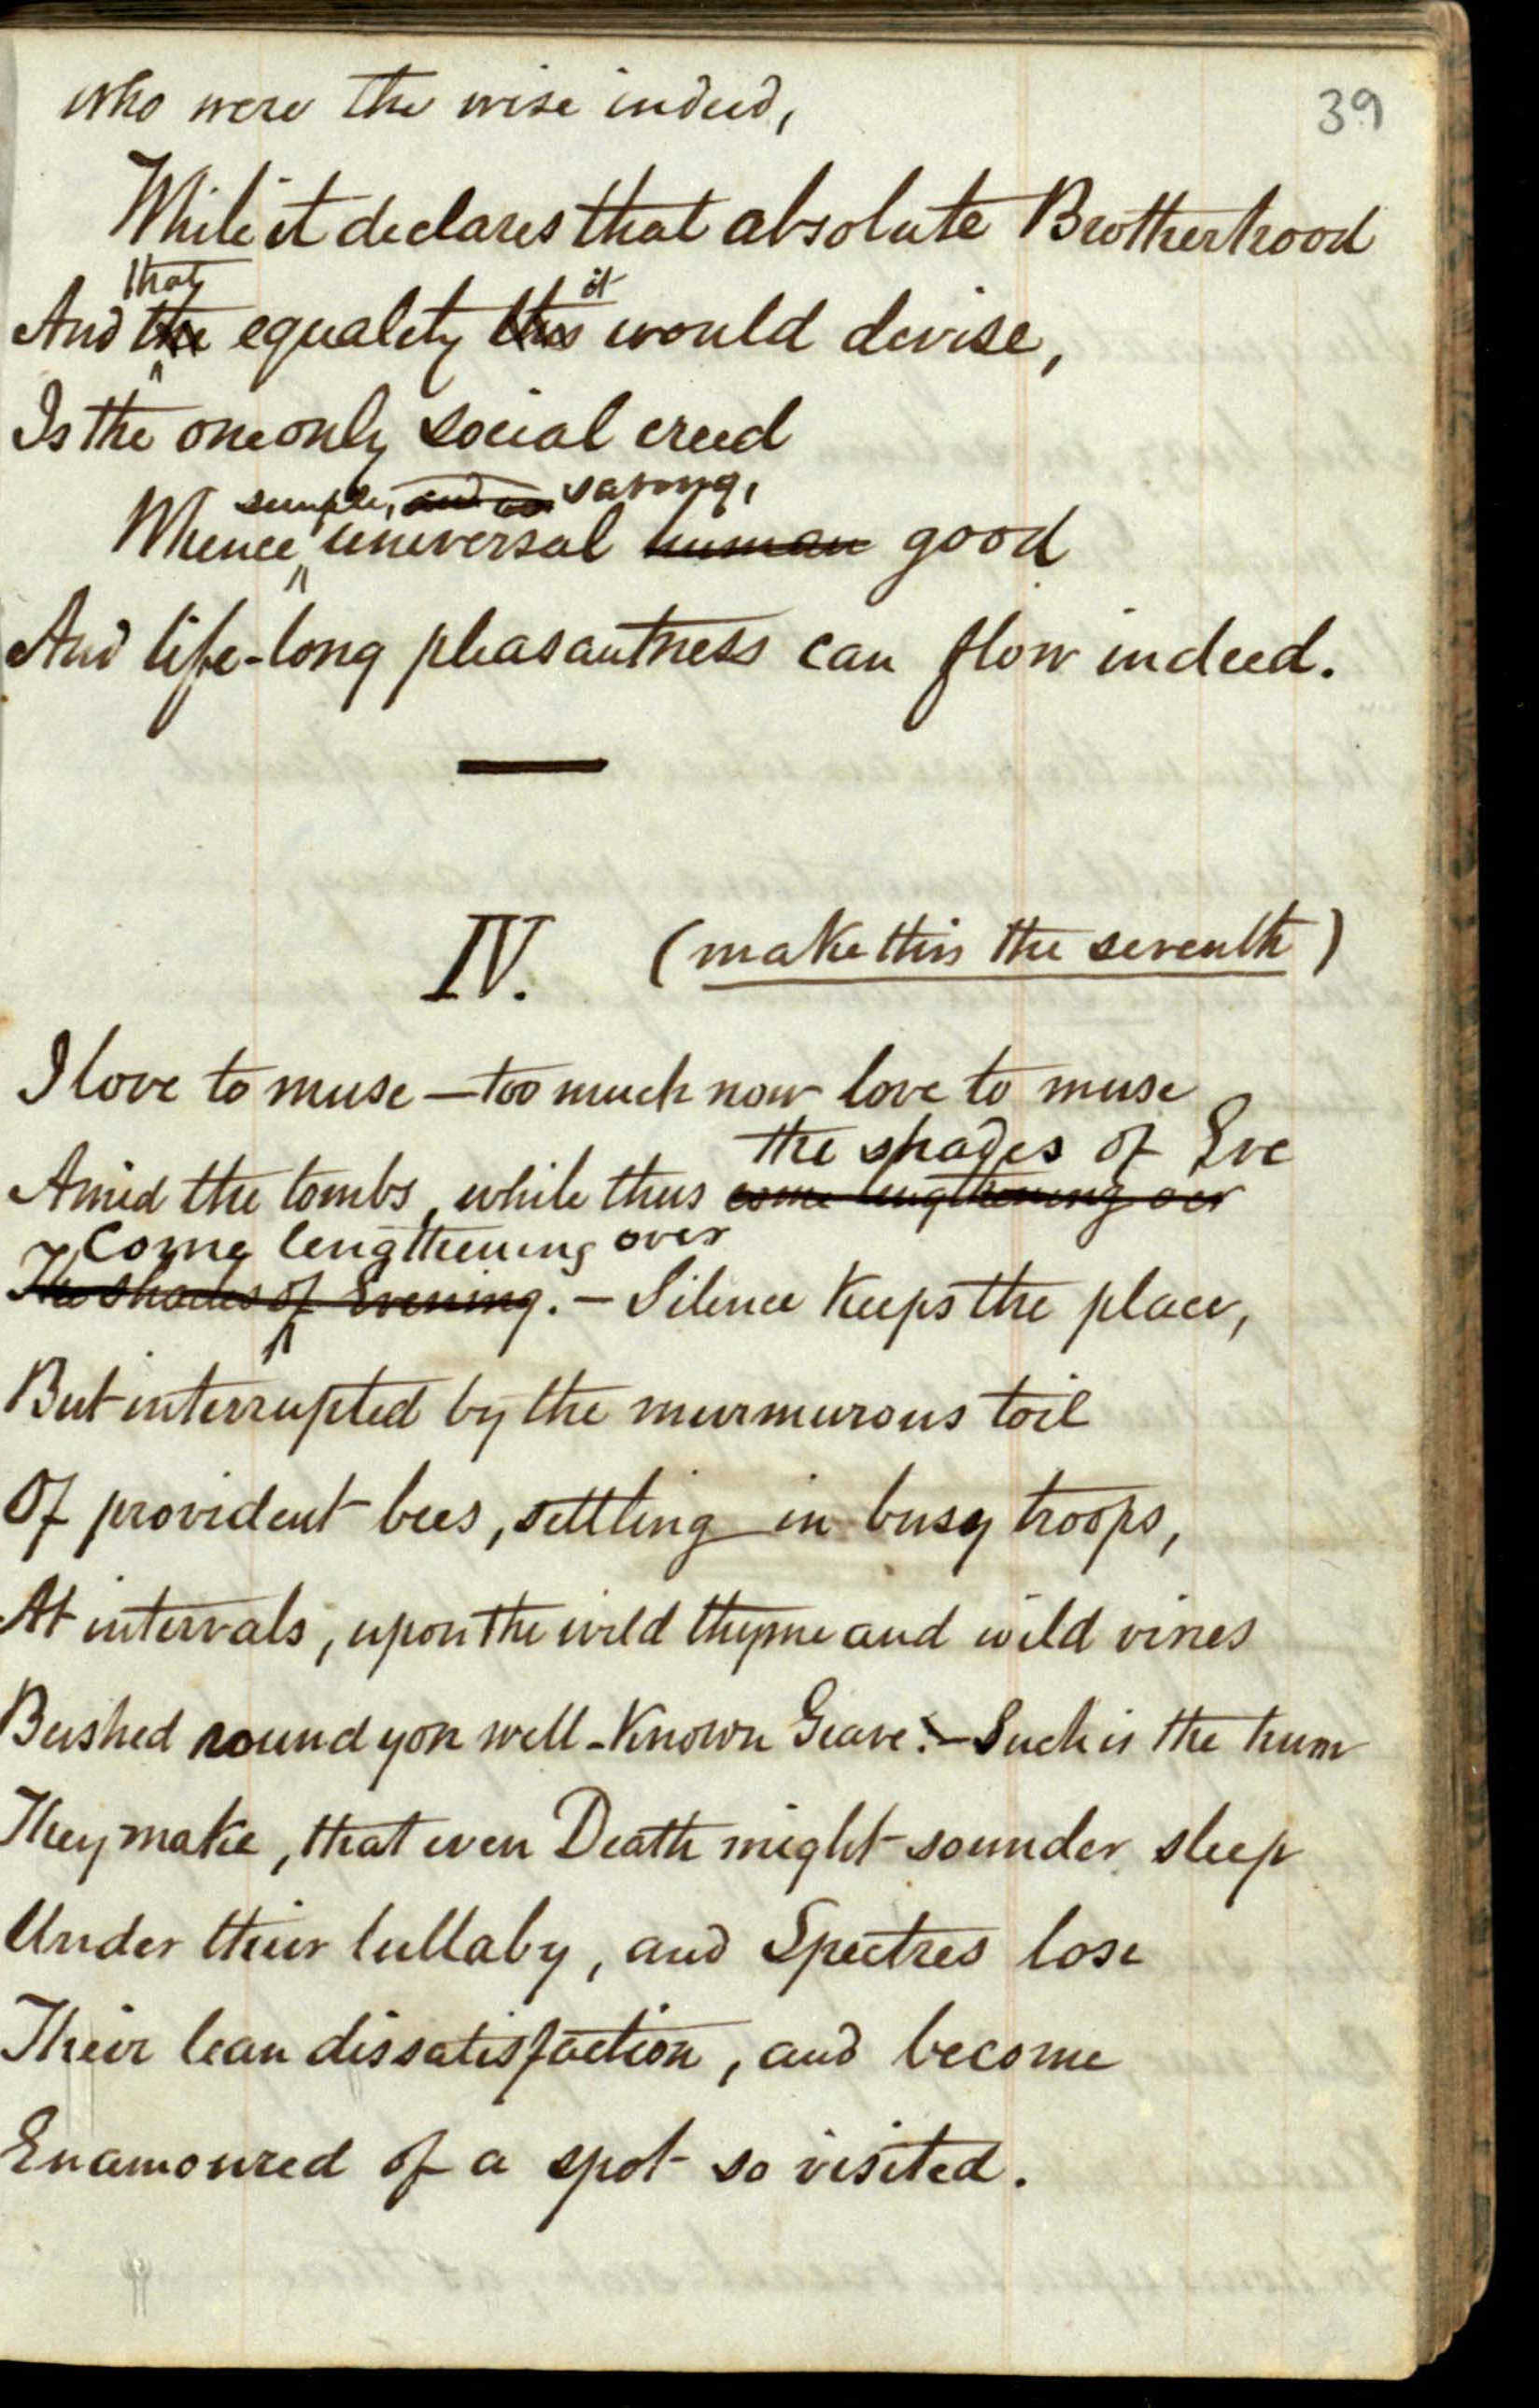 39
who were the wise indeed,
While it declares that absolute Brotherhood
that it
And the equality this would devise,
Is the one only social creed
simple, and saving,
Whence universal human good
And life-long pleasantness can flow indeed.
IV. (make this the seventh)
I love to muse — too much now love to muse
the shades of Eve
Amid the tombs, while thus come lengthening oer
Come lengthening over
The shades of Evening. — Silence keeps the place,
But interrupted by the murmurous toil
Of provident bees, settling in busy troops,
At intervals, upon the wild thyme and wild vines
Bushed round yon well-known Grave. — Such is the hum
They make, that even Death might sounder sleep
Under their lullaby, and Spectres lose
Their lean dissatisfaction, and become
Enamoured of a spot so visited.